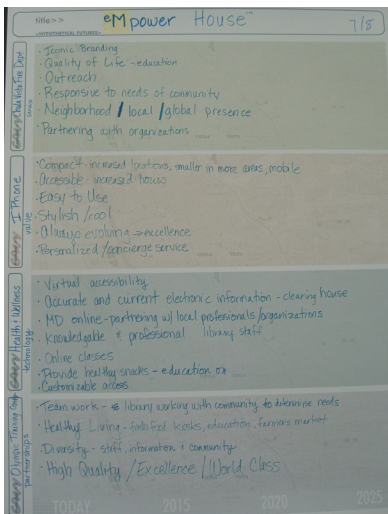 title>> eMpower House™ 7/8
<HYPOTHETICAL FUTURES>
Chula Vista Fire Dept
· Iconic Branding
· Quality of Life - education
· Outreach
· Responsive to needs of community
· Neighborhood / local / global presence
· Partnering with organizations
I Phone
value
· Compact - increased locations, smaller in more areas, mobile
· Accessible - increased hours
· Easy to Use
· Stylish / cool
· Always evolving → excellence
· Personalized / concierge service
Health & Wellness
technology
· Virtual accessibility
· Accurate and current electronic information - clearing house
· MD online - partnering w/ local professionals/organizations
· Knowledgable & professional library staff
· Online classes
· Provide healthy snacks - education on
· Customizable access
Olympic Training
partnerships
· Team work - library working with community to determine needs
· Healthy Living - kiosks, education, farmers market
· Diversity - staff, information & community
· High Quality / Excellence / World Class
TODAY 2015 2020 2025